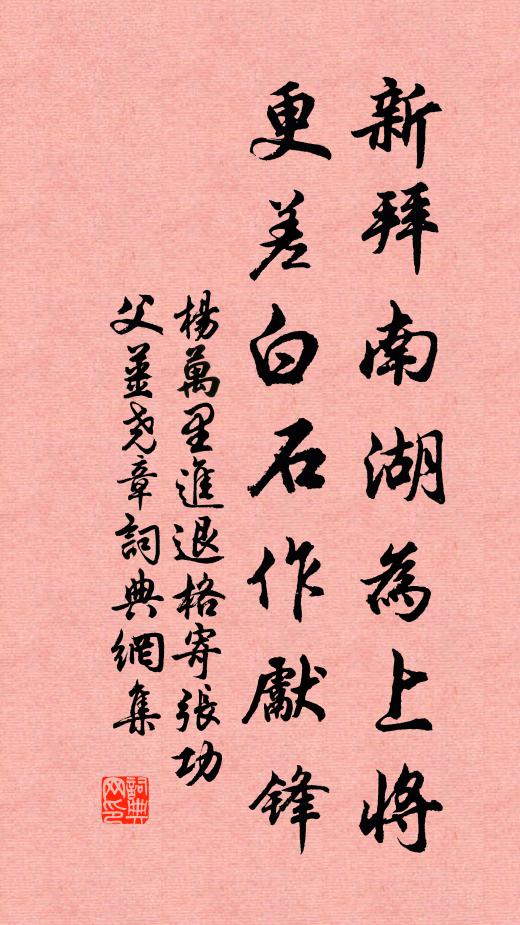 新拜南湖為上將
更差白石作獻鋒
楊萬里進退格寄張功
父薑尧章詞典網集
詞典
网印